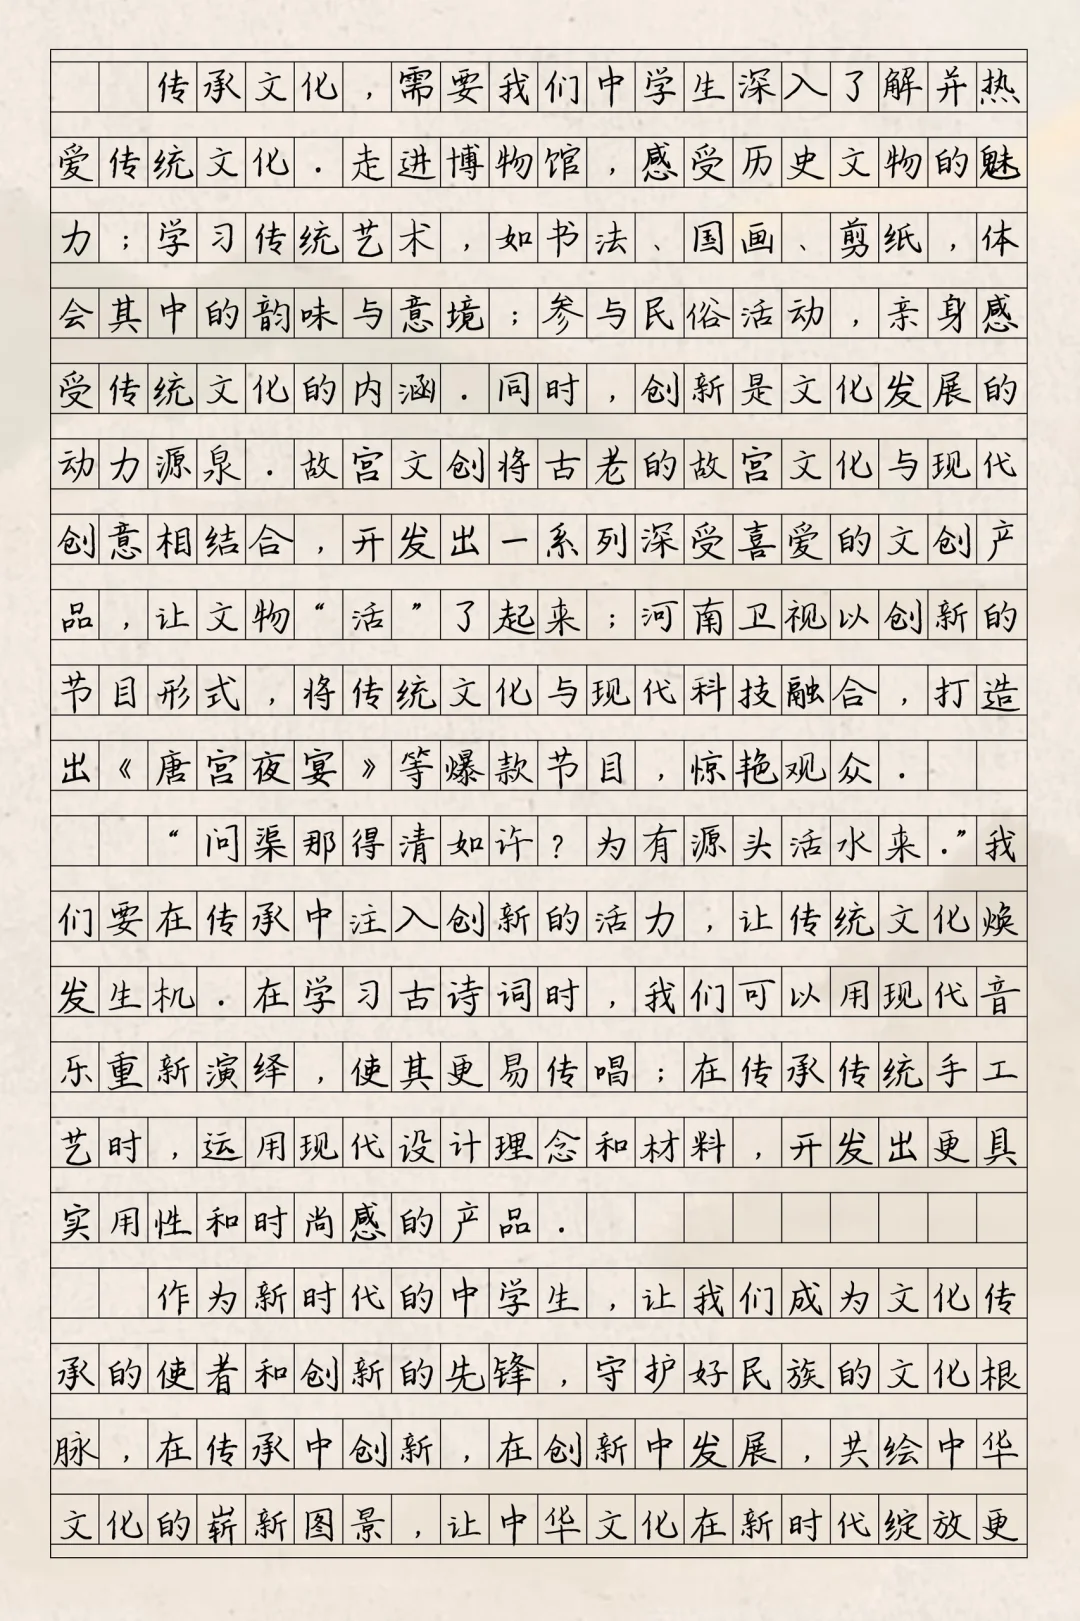 传承文化，需要我们中学生深入了解并热
爱传统文化．走进博物馆，感受历史文物的魅
力；学习传统艺术，如书法、国画、剪纸，体
会其中的韵味与意境；参与民俗活动，亲身感
受传统文化的内涵．同时，创新是文化发展的
动力源泉．故宫文创将古老的故宫文化与现代
创意相结合，开发出一系列深受喜爱的文创产
品，让文物“活”了起来；河南卫视以创新的
节目形式，将传统文化与现代科技融合，打造
出《唐宫夜宴》等爆款节目，惊艳观众．
“问渠那得清如许？为有源头活水来．”我
们要在传承中注入创新的活力，让传统文化焕
发生机．在学习古诗词时，我们可以用现代音
乐重新演绎，使其更易传唱；在传承传统手工
艺时，运用现代设计理念和材料，开发出更具
实用性和时尚感的产品．
作为新时代的中学生，让我们成为文化传
承的使者和创新的先锋，守护好民族的文化根
脉，在传承中创新，在创新中发展，共绘中华
文化的崭新图景，让中华文化在新时代绽放更